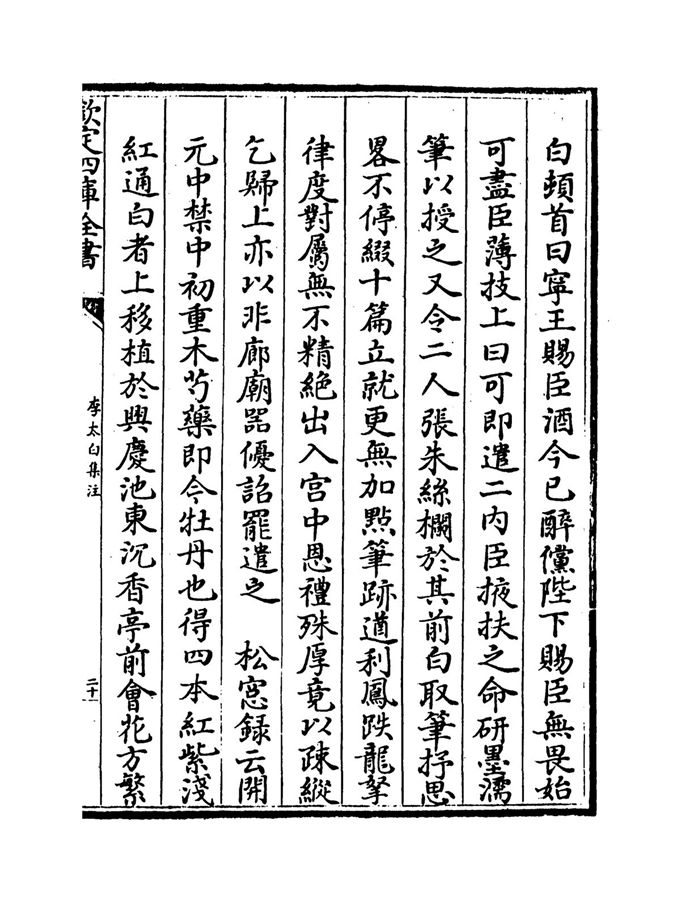 白頓首曰寧王賜臣酒今已醉儻陛下賜臣無畏始
可盡臣薄技上曰可即遣二内臣掖扶之命研墨濡
筆以授之又令二人張朱絲欄於其前白取筆抒思
畧不停綴十篇立就更無加點筆跡遒利鳳跌龍拏
律度對屬無不精絶出入宫中恩禮殊厚竟以疎縱
乞歸上亦以非廊廟器優詔罷遣之　松窓録云開
元中禁中初重木芍藥即今牡丹也得四本紅紫淺
紅通白者上移植於興慶池東沉香亭前會花方繁
欽定四庫全書
李太白集注
二十一